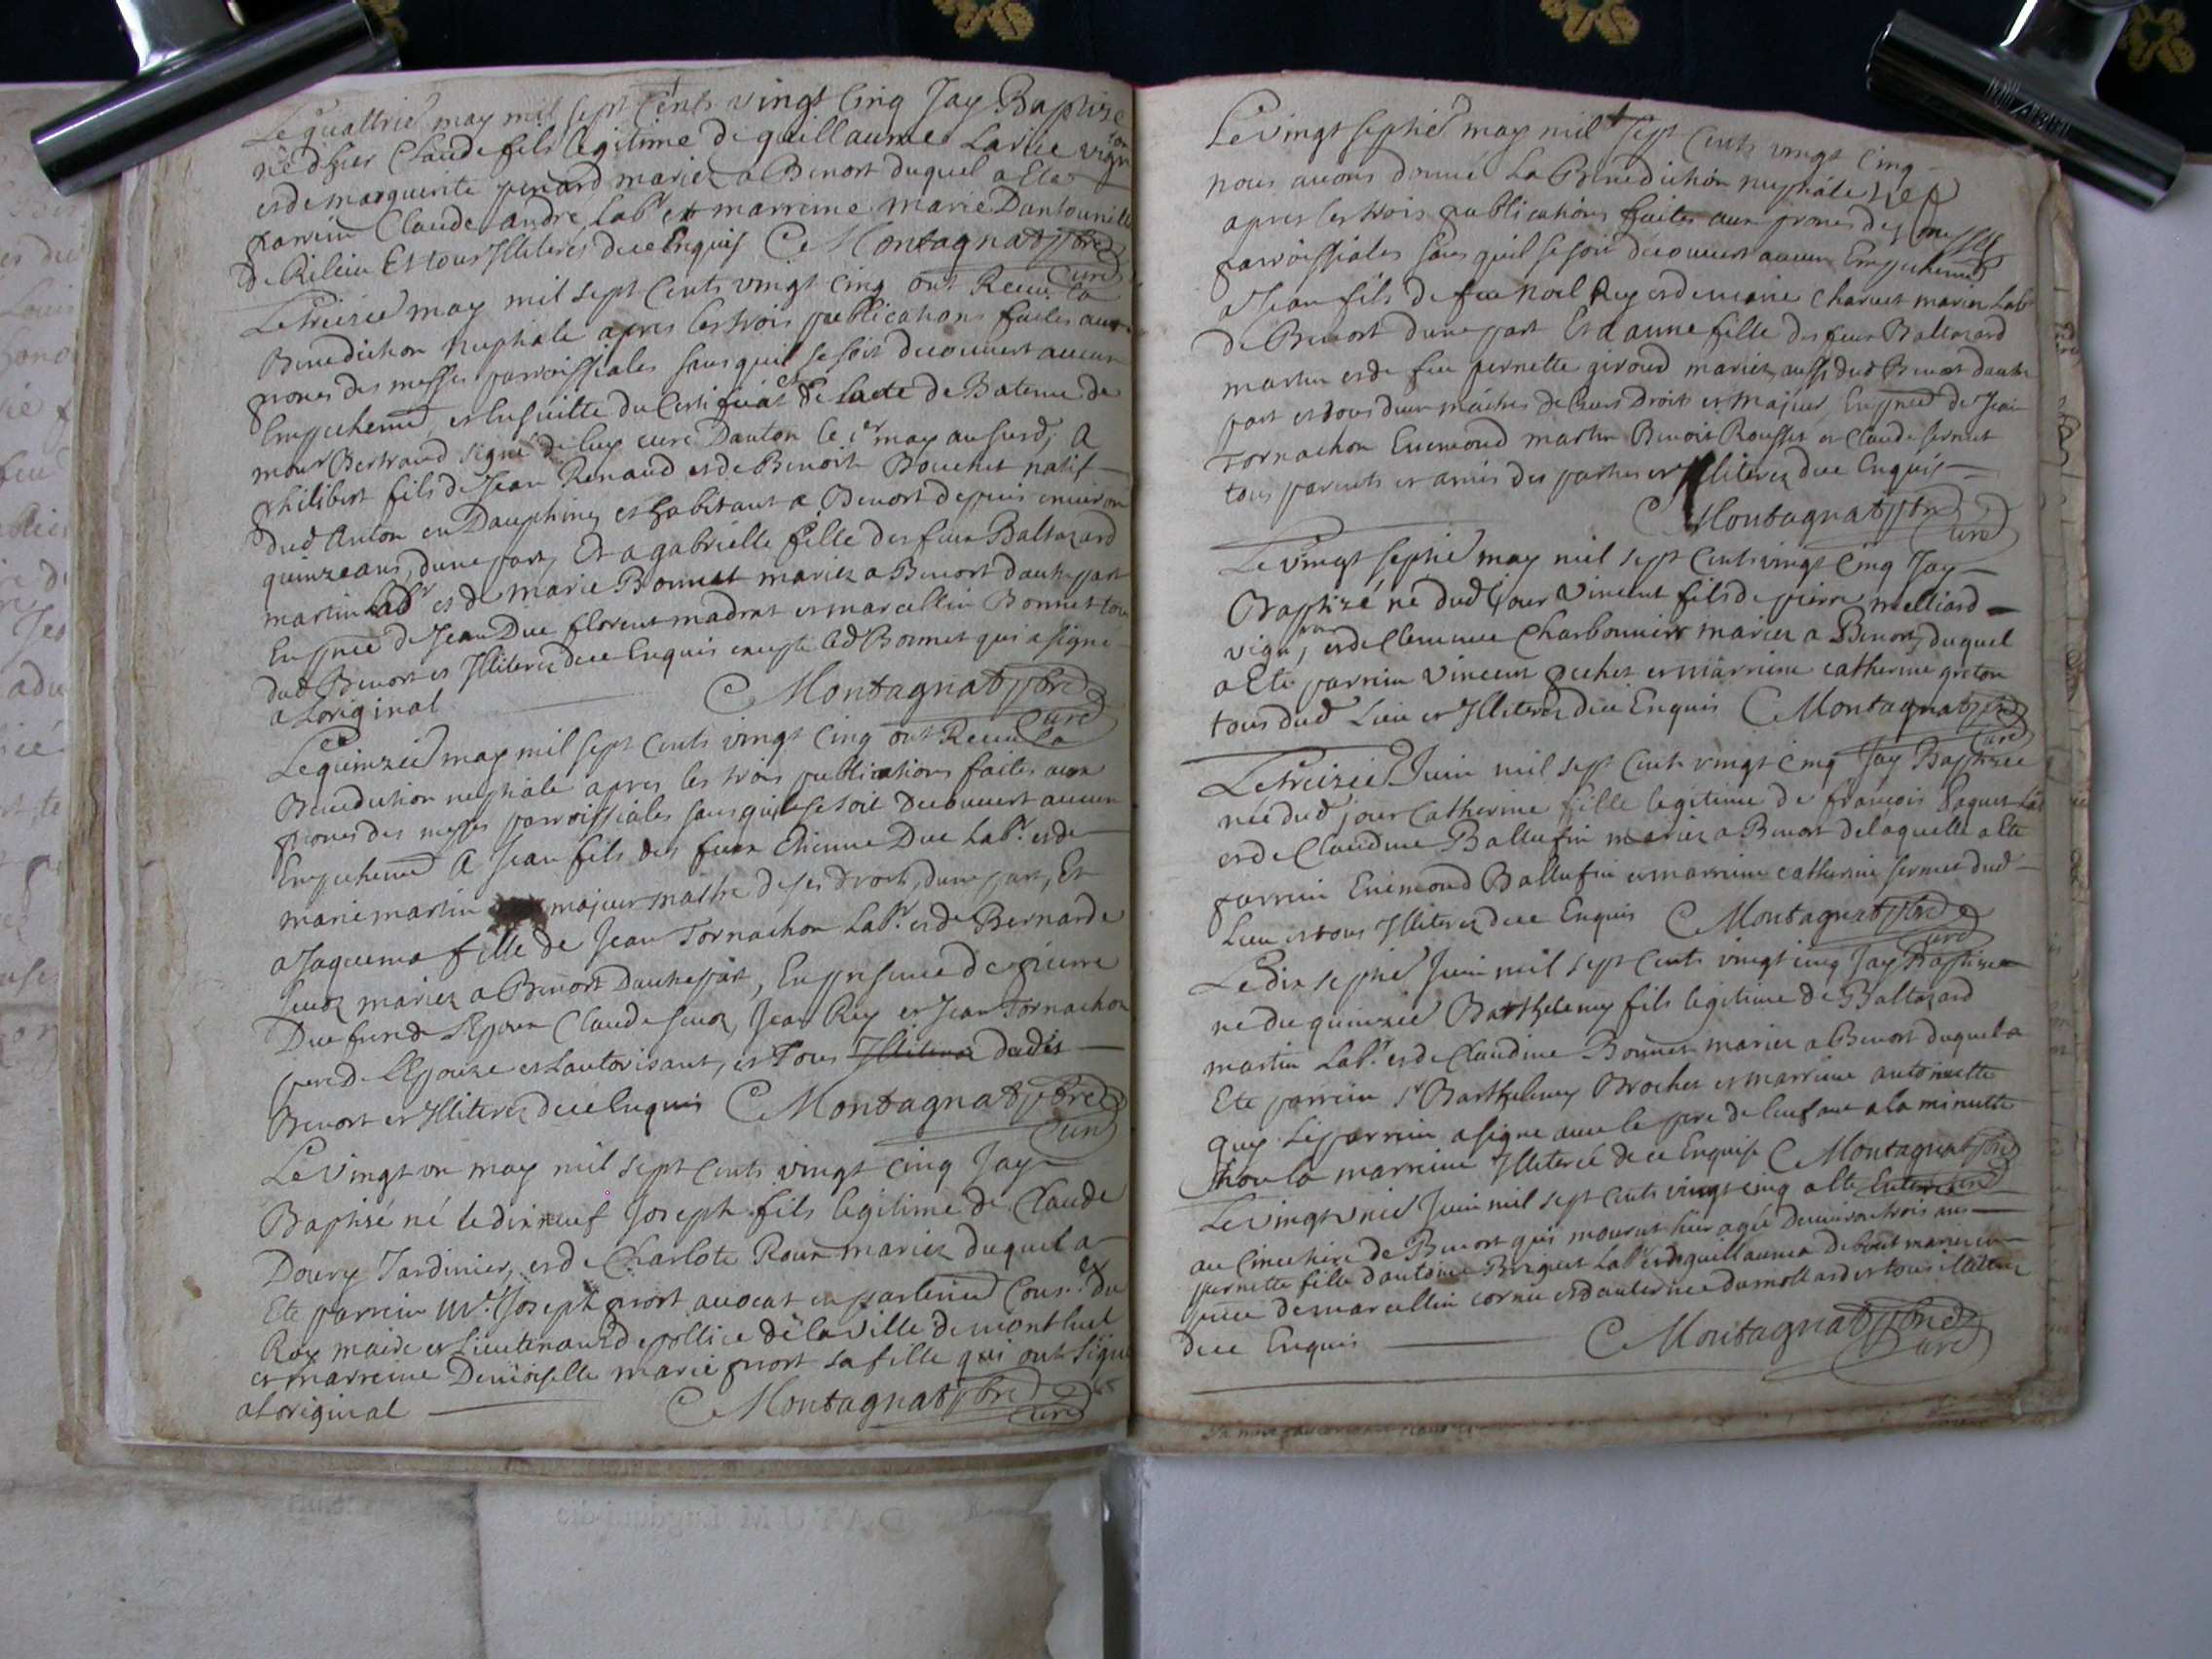 Le quattrie may mil sept Cents vingt Cinq Jay Baptize
né dhier Claude fils legitime de guillaume Larue vign
et de marguerite penard mariez a Benost duquel a Ete
parrein Claude andre Lab.r et marreine marie
de Rilieu Et tous Illiterés de ce Enquis C Montagnat ptre
Curé
Le treizie may mil sept Cents vingt Cinq ont Receu la
Benediction nuptiale apres les trois publications faites aux
prones des messes parroissiales sans quil se soit decouvert aucun
Empechemt, et Ensuitte du Certificat et de Lacte de Batême de
mour Bertrand signé de luy curé Danton le 1er may ausurd, A
philibert fils de Jean Renaud et de Benoite Bouchet natif
dud Anton en Dauphiné et habitant a Benost depuis environ
quinze ans, dune part, Et a gabrielle fille des feux Baltazard
martin Labr et de marie Bonnet mariez a Benost dautre part
En pnce de Jean Duc florent madrat et marcellin Bonnet tous
dud Benost et Illiterez de ce Enquis excepte led Bonnet qui a signe
a Loriginal C Montagnat ptre
Curé
Le quinzie may mil sept Cents vingt Cinq ont Receu La
Benediction nuptiale apres les trois publications faites aux
prones des messes parroissiales sans quil se soit decouvert aucun
Empechemt A Jean fils des feux Etienne Duc Labr. et de
marie martin majeur maitre de ses droits, dune part, Et
a Jaquema fille de Jean Tornachon Labr. et de Bernarde
mariez a Benost Dautre part, En presence de pierre
Duc frere de LEpoux Claude Jean Rey et Jean Tornachon
pere de LEpouze et Lautorisant, et Tous Illiterez dudit
Benost et Illiterez de ce Enquis C Montagnat ptre
Curé
Le Vingt un may mil sept Cents vingt Cinq Jay
Baptisé né le dix neuf Joseph fils legitime de Claude
Doury Jardinier, et de Charlote Roux mariez duquel a
Ete parrein Mr. Joseph prost avocat en parlement Cons.er du
Roy maire et Lieutenant de pollice de la ville de montluel
et marreine Demoiselle marie prost sa fille qui ont signé
a Loriginal C Montagnat ptre
Curé
Le vingt septie may mil sept Cents vingt Cinq
nous avons donné La Benediction nuptiale
apres les trois publications faites aux prones des messes
parroissiales sans quil se soit decouvert aucun Empechemt
a Jean fils de feu noel Rey et de marie Charvet mariez Labr
de Benost dune part Et a anne fille des feux Baltazard
martin et de feu pernette giroud mariez aussi dud Benost dautre
part et tous deux maitres de Leurs Droits et Majeurs, En pnce de Jean
Tornachon Enemond martin Benoit Rousset et Claude sermet
tous parents et amis des parties et Illiterez de ce Enquis
C Montagnat ptre
Curé
Le vingt septie may mil sept Cents vingt Cinq Jay
Baptizé né dud Jour Vincent fils de pierre melliard
vign, et de Clemence Charbonnier mariez a Benost, duquel
a Ete parrein Vincent pechet et marreine catherine greton
tous dud Lieu et Illiterez de ce Enquis C Montagnat ptre
Curé
Le treizie Juin mil sept Cents vingt Cinq Jay Baptizee
née dud jour Catherine fille legitime de francois Paquet Lab
et de Claudine Ballufin mariez a Benost de laquelle a Ete
parrein Enemond Ballufin et marreine catherine sermet dud
Lieu et tous Illiterez de ce Enquis C Montagnat ptre
Curé
Le dix septie Juin mil sept Cents vingt cinq Jay Baptizee
ne du quinzie Barthelemy fils legitime de Baltazard
martin Labr. et de Claudine Bonnet mariez a Benost duquel a
Ete parrein sr Barthelemy Brochet et marreine antoinette
guy. Le parrein a signe avec le pere de lenfant a la minutte
non la marreine Illiterée de ce Enquise C Montagnat ptre
Curé
Le vingt unie Juin mil sept Cents vingt cinq a Ete Enterré
au Cimetière de Benost qui mourut hier agée Denviron trois ans
pernette fille dantoine Briguet Labr et de guillauma mariez en
pnce de marcellin cornu et dautern et tous illiterez
de ce Enquis C Montagnat ptre
Curé
DATUM Lugduni die